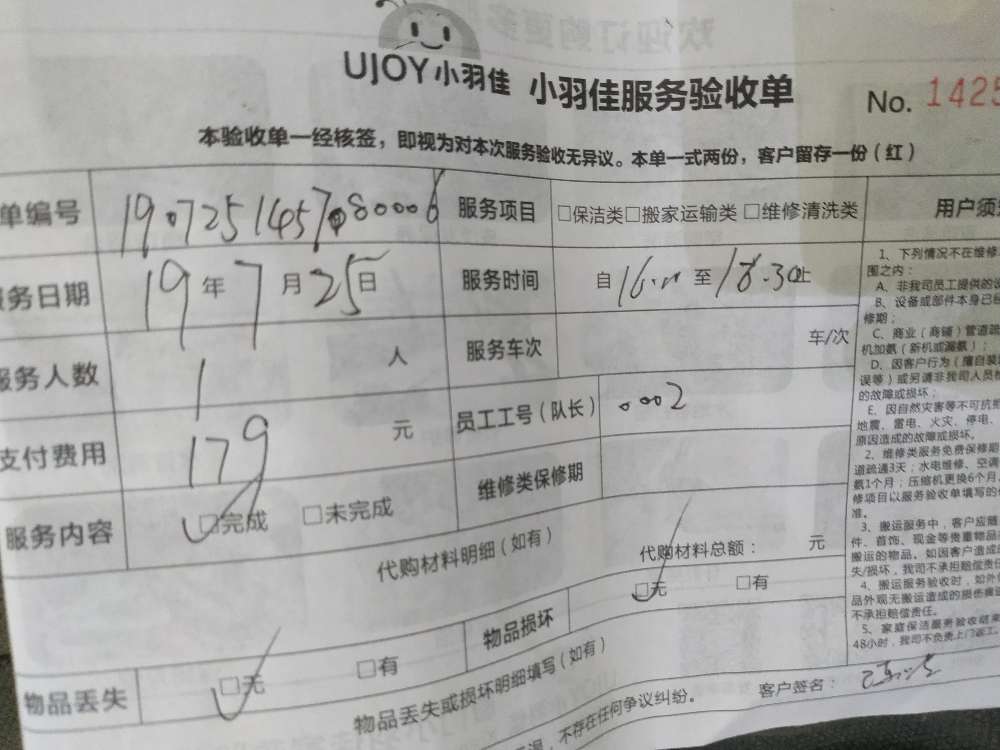 UJOY小羽佳 小羽佳服务验收单 No. 1425
本验收单一经核签，即视为对本次服务验收无异议。本单一式两份，客户留存一份（红）
单编号 服务项目 □保洁类□搬家运输类 □维修清洗类 用户须
服务日期 19年7月25日 服务时间 自16:00至18:30止
服务人数 1人 服务车次 车/次
支付费用 179元 员工工号（队长） 0002
维修类保修期
服务内容 □完成 □未完成
代购材料明细（如有） 代购材料总额： 元
物品损坏 □无 □有
物品丢失 □无 □有
物品丢失或损坏明细填写（如有）
不存在任何争议纠纷。 客户签名：
1、下列情况不在维修
围之内：
A、非我司员工提供的设
B、设备或部件本身已
修期；
C、商业（商铺）管道疏
机加氨（新机或漏氨）；
D、因客户行为（擅自装
误等）或另请非我司人员
的故障或损坏；
E、因自然灾害等不可抗
地震、雷电、火灾、停电、
原因造成的故障或损坏。
2、维修类服务免费保修期
道疏通3天；水电维修、空调
氨1个月；压缩机更换6个月
修项目以服务验收单填写的
准。
3、搬运服务中，客户应
件、首饰、现金等贵重物品
搬运的物品。如因客户造成
失/损坏，我司不承担赔偿责任
4、搬运服务验收时，如外
品外观无搬运造成的损伤痕
不承担赔偿责任。
5、家庭保洁服务验收结束
48小时，我司不负责上门返工